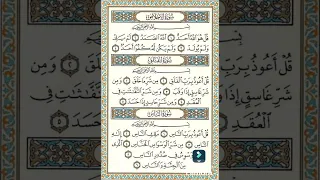 سُورَةُ الإِخْلَاصِ
بِسْمِ اللَّهِ الرَّحْمَٰنِ الرَّحِيمِ
قُلْ هُوَ اللَّهُ أَحَدٌ ۝ اللَّهُ الصَّمَدُ ۝ لَمْ يَلِدْ
وَلَمْ يُولَدْ ۝ وَلَمْ يَكُن لَّهُ كُفُوًا أَحَدٌ ۝
سُورَةُ الفَلَقِ
بِسْمِ اللَّهِ الرَّحْمَٰنِ الرَّحِيمِ
قُلْ أَعُوذُ بِرَبِّ الْفَلَقِ ۝ مِن شَرِّ مَا خَلَقَ ۝ وَمِن
شَرِّ غَاسِقٍ إِذَا وَقَبَ ۝ وَمِن شَرِّ النَّفَّاثَاتِ فِي
الْعُقَدِ ۝ وَمِن شَرِّ حَاسِدٍ إِذَا حَسَدَ ۝
سُورَةُ النَّاسِ
بِسْمِ اللَّهِ الرَّحْمَٰنِ الرَّحِيمِ
قُلْ أَعُوذُ بِرَبِّ النَّاسِ ۝ مَلِكِ النَّاسِ ۝ إِلَٰهِ
النَّاسِ ۝ مِن شَرِّ الْوَسْوَاسِ الْخَنَّاسِ ۝ الَّذِي
يُوَسْوِسُ فِي صُدُورِ النَّاسِ ۝
مِنَ الْجِنَّةِ وَالنَّاسِ ۝